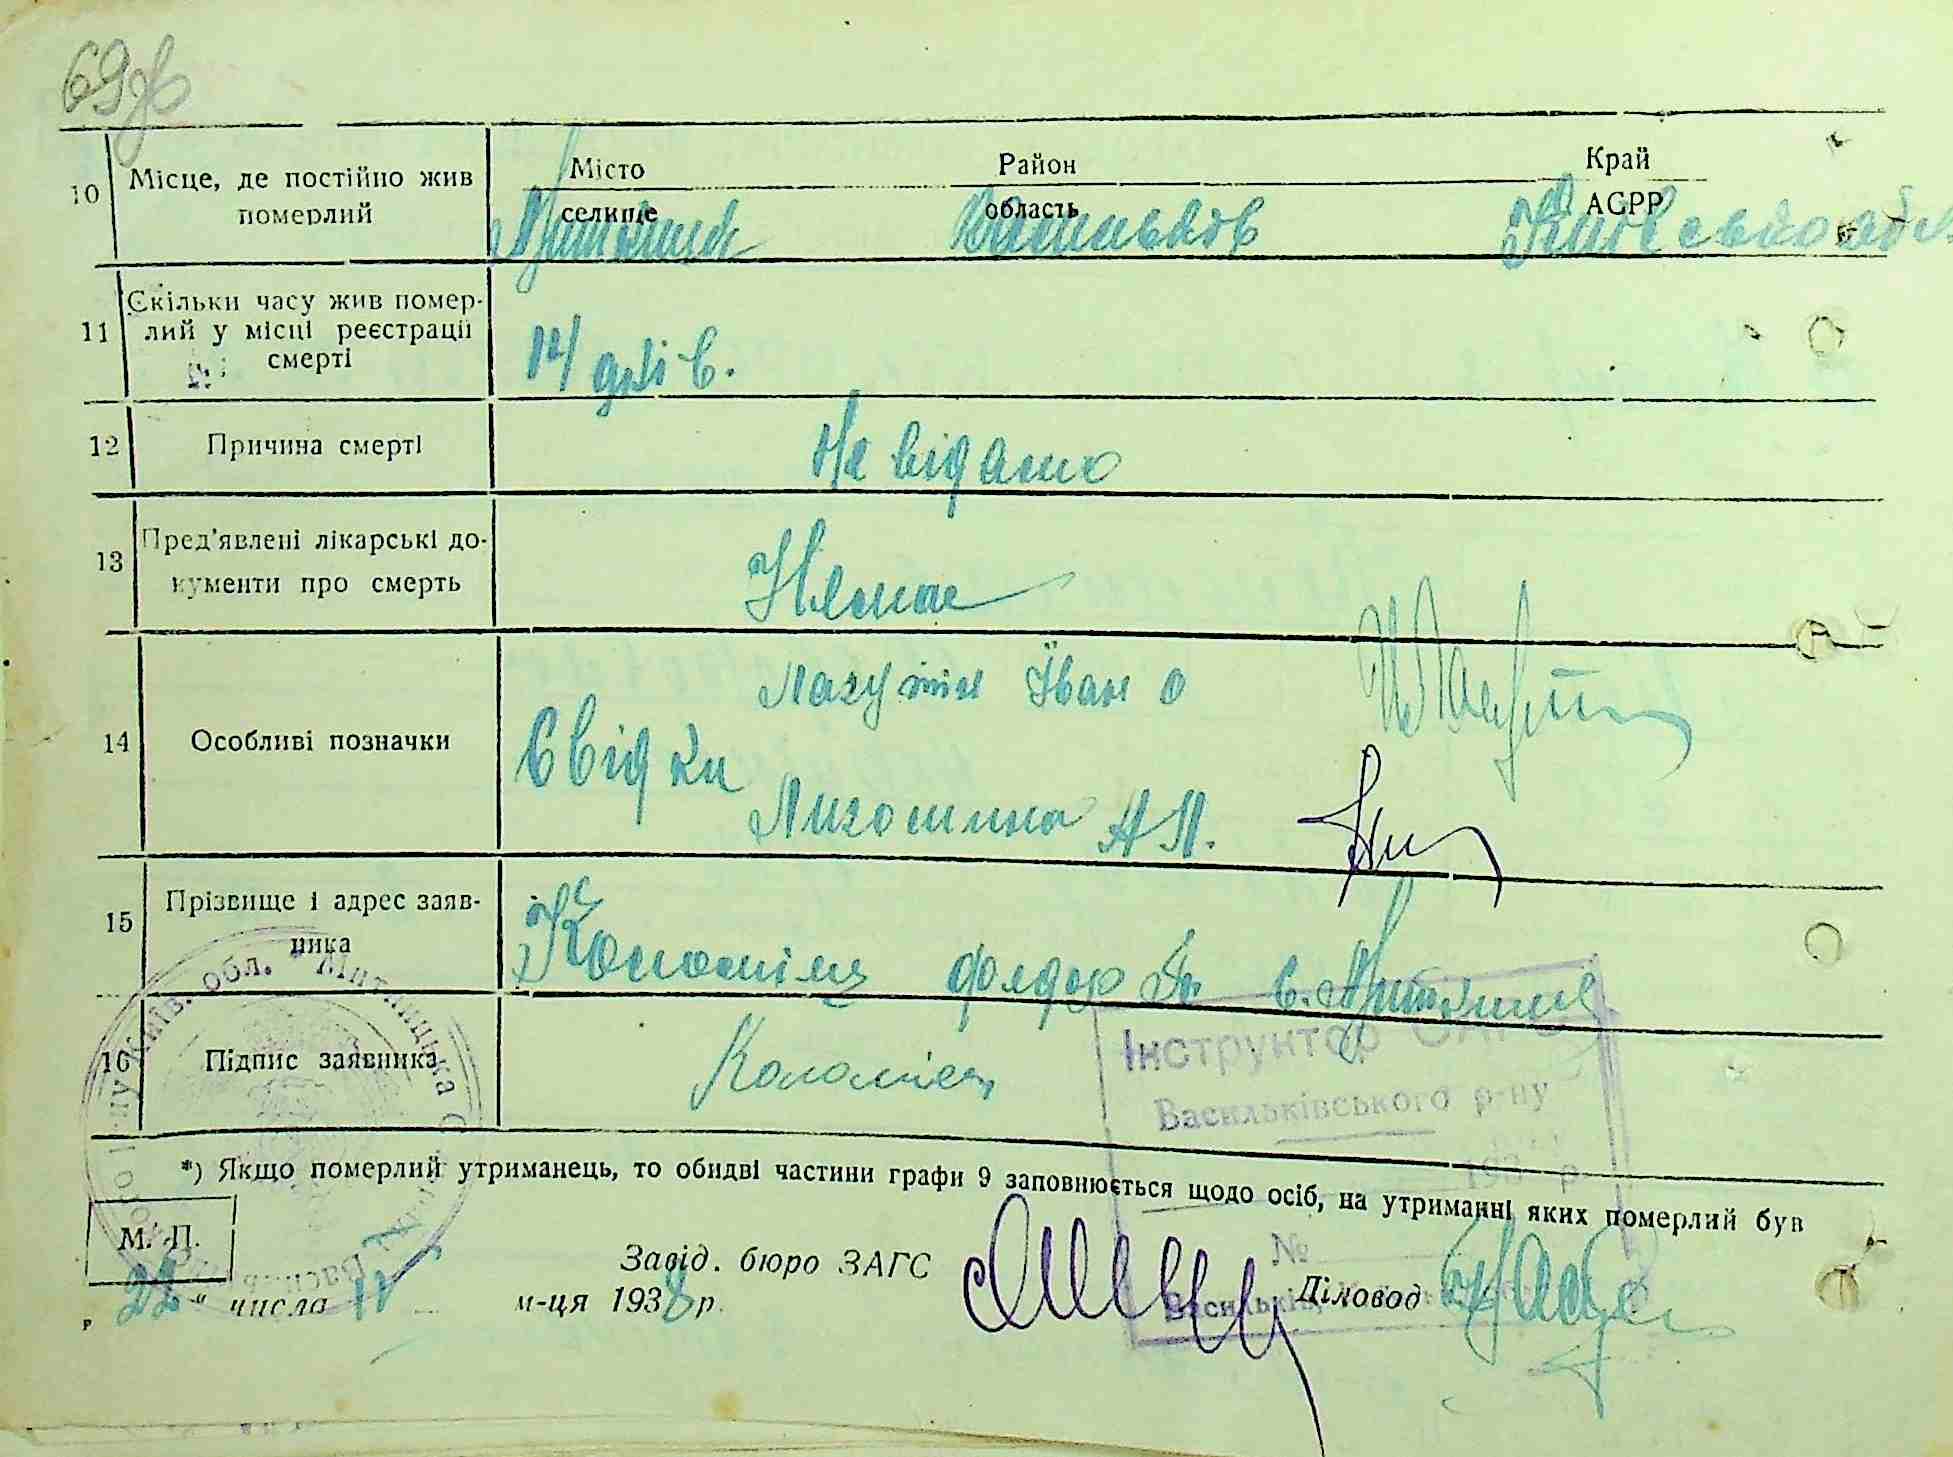 69зв
Місто Район Край
10 Місце, де постійно жив
померлий
селище область АСРР
Митниця Васильків Київська обл
11 Скільки часу жив помер-
лий у місці реєстрації
смерті
14 днів.
12 Причина смерті Не відомо
13 Пред'явлені лікарські до-
кументи про смерть
Немає
14 Особливі позначки
Лазутін Іван О
Свідки
А П.
15 Прізвище і адрес заяв-
ника
Коломієць Федор с. Митниця
16 Підпис заявника Коломієц
*) Якщо померлий утриманець, то обидві частини графи 9 заповнюється щодо осіб, на утриманні яких померлий був
М. П.
Завід. бюро ЗАГС Діловод
22 " числа 11 м-ця 1938 р.
Інструктор
Васильківського р-ну
193 р.
№
Київ. обл. * Митницька С